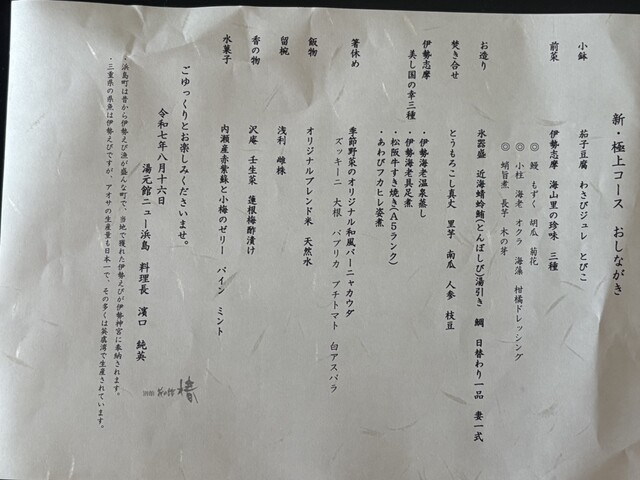 新・極上コース おしながき
小鉢 茄子豆腐 わさびジュレ とびこ
前菜 伊勢志摩 海山里の珍味 三種
◎ 鰻 もずく 胡瓜 菊花
◎ 小柱 海老 オクラ 海藻 柑橘ドレッシング
◎ 蛸旨煮 長芋 木の芽
お造り 氷器盛 近海鯖蛉鮪(とんぼしび)湯引き 鯛 日替わり一品 妻一式
焚き合せ とうもろこし真丈 里芋 南瓜 人参 枝豆
伊勢志摩 ・伊勢海老温泉蒸し
美し国の幸三種 ・伊勢海老具足煮
・松阪牛すき焼き(A5ランク)
・あわびフカヒレ姿煮
箸休め 季節野菜のオリジナル和風バーニャカウダ
ズッキーニ 大根 パプリカ プチトマト 白アスパラ
飯物 オリジナルブレンド米 天然水
留椀 浅利 雌株
香の物 沢庵 壬生菜 蓮根梅酢漬け
水菓子 内瀬産赤紫蘇と小梅のゼリー パイン ミント
ごゆっくりとお楽しみくださいませ。
令和七年八月十六日
湯元館ニュー浜島 料理長 濱口 純英
・浜島町は昔から伊勢えび漁が盛んな町で、当地で獲れた伊勢えびが伊勢神宮に奉納されます。
・三重県の県魚は伊勢えびですが、アオサの生産量も日本一で、その多くは英虞湾で生産されています。
椿